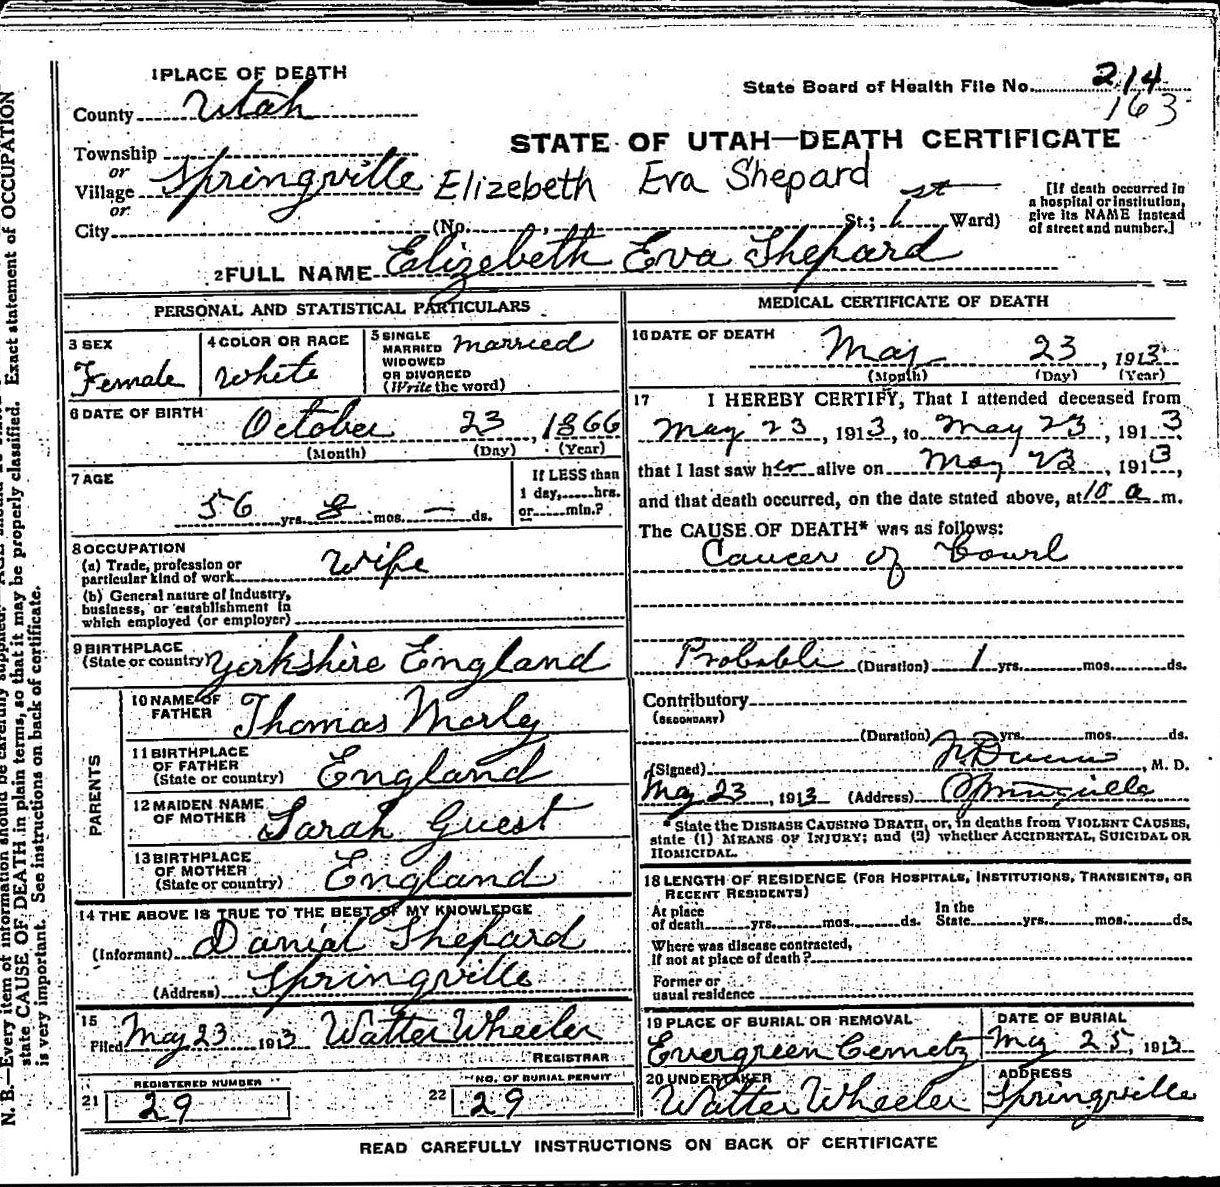 1 PLACE OF DEATH
State Board of Health File No. 214
163
County Utah
STATE OF UTAH—DEATH CERTIFICATE
Township
or
Village Springville Elizebeth Eva Shepard
or
City (No. , St.; 1st Ward)
[If death occurred in
a hospital or institution,
give its NAME instead
of street and number.]
2 FULL NAME Elizebeth Eva Shepard
PERSONAL AND STATISTICAL PARTICULARS
3 SEX
Female
4 COLOR OR RACE
White
5 SINGLE
MARRIED
WIDOWED
OR DIVORCED
(Write the word)
married
6 DATE OF BIRTH
October 23, 1866
(Month) (Day) (Year)
7 AGE
56 yrs. 8 mos. — ds.
If LESS than
1 day, hrs.
or min.?
8 OCCUPATION
(a) Trade, profession or
particular kind of work Wife
(b) General nature of industry,
business, or establishment in
which employed (or employer)
9 BIRTHPLACE
(State or country) Yorkshire England
PARENTS
10 NAME OF
FATHER Thomas Morly
11 BIRTHPLACE
OF FATHER
(State or country) England
12 MAIDEN NAME
OF MOTHER Sarah Guest
13 BIRTHPLACE
OF MOTHER
(State or country) England
14 THE ABOVE IS TRUE TO THE BEST OF MY KNOWLEDGE
(Informant) Danial Shepard
(Address) Springville
15
Filed May 23 1913 Walter Wheeler
REGISTRAR
REGISTERED NUMBER
21 29
NO. OF BURIAL PERMIT
22 29
MEDICAL CERTIFICATE OF DEATH
16 DATE OF DEATH
May 23, 1913
(Month) (Day) (Year)
17 I HEREBY CERTIFY, That I attended deceased from
May 23, 1913, to May 23, 1913
that I last saw her alive on May 23, 1913,
and that death occurred, on the date stated above, at 10 a m.
The CAUSE OF DEATH* was as follows:
Cancer of Bowl
Probable (Duration) 1 yrs. mos. ds.
Contributory
(SECONDARY)
(Duration) yrs. mos. ds.
(Signed) , M. D.
May 23, 1913 (Address) Springville
*State the DISEASE CAUSING DEATH, or, in deaths from VIOLENT CAUSES,
state (1) MEANS OF INJURY; and (2) whether ACCIDENTAL, SUICIDAL OR
HOMICIDAL.
18 LENGTH OF RESIDENCE (FOR HOSPITALS, INSTITUTIONS, TRANSIENTS, OR
RECENT RESIDENTS)
At place
of death yrs. mos. ds.
In the
State yrs. mos. ds.
Where was disease contracted,
if not at place of death?
Former or
usual residence
19 PLACE OF BURIAL OR REMOVAL
Evergreen Cemetry
DATE OF BURIAL
May 25, 1913
20 UNDERTAKER
Walter Wheeler
ADDRESS
Springville
READ CAREFULLY INSTRUCTIONS ON BACK OF CERTIFICATE
N. B.—Every item of information should be carefully supplied.
state CAUSE OF DEATH in plain terms, so that it may be properly classified. Exact statement of OCCUPATION
is very important. See instructions on back of certificate.